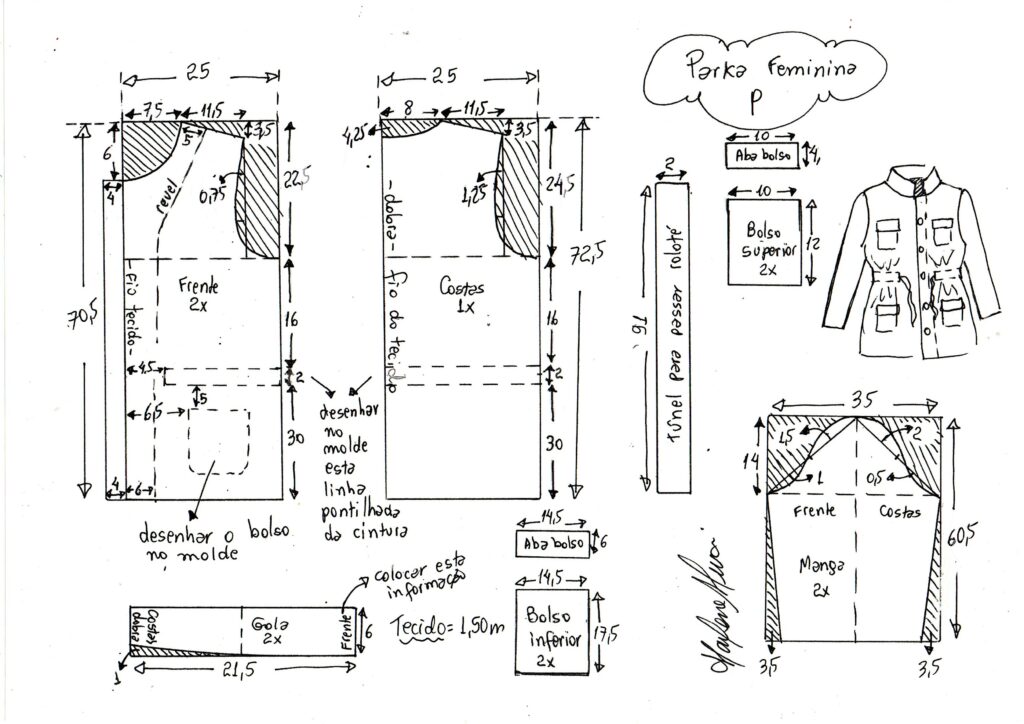 Parka Feminina
P
25
7,5
11,5
3,5
6
5
4
revel
0,75
22,5
Frente
2x
-fio tecido-
70,5
16
4,5
2
5
6,5
30
4
6
desenhar o bolso
no molde
25
8
11,5
4,25
3,5
1,25
24,5
-dobra- fio do tecido
Costas
1x
72,5
16
2
30
desenhar
no
molde
esta
linha
pontilhada
da cintura
2
76
Túnel para passar roloté
10
Aba bolso
4
10
Bolso
superior
2x
12
35
14
1,5
2
1
0,5
Frente
Costas
60,5
Manga
2x
3,5
3,5
14,5
Aba bolso
6
14,5
Bolso
inferior
2x
17,5
Tecido = 1,50m
colocar esta
informação
Costas
dobra
Gola
2x
Frente
6
1
21,5